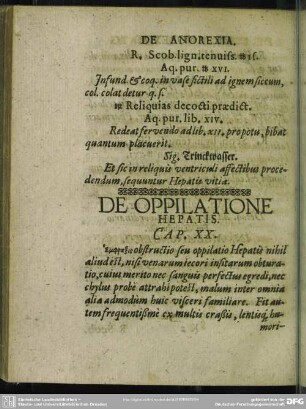 DE ANOREXIA.
R. Scob. lign. tenuiss. ℔ iſ.
Aq. pur. ℔ xvi.
Infund. & coq. in vase fictili ad ignem siccum,
col. colat detur q. s.
Reliquias decocti prædict.
Aq. pur. lib. xiv.
Redeat fervendo ad lib. xii. pro potu, bibat
quantum placuerit.
Sig. Trinckwasser.
Et sic in reliquis ventriculi affectibus proce-
dendum, sequuntur Hepatis vitia.
DE OPPILATIONE
HEPATIS.
CAP. XX.
obstructio seu oppilatio Hepatis nihil
aliud est, nisi venarum jecori insitarum obtura-
tio, cuius merito nec sanguis perfectus egredi, nec
chylus probè attrahi potest, malum inter omnia
alia admodùm huic visceri familiare. Fit au-
tem frequentissimè ex multis crassis, lentisq; hu-
mori-